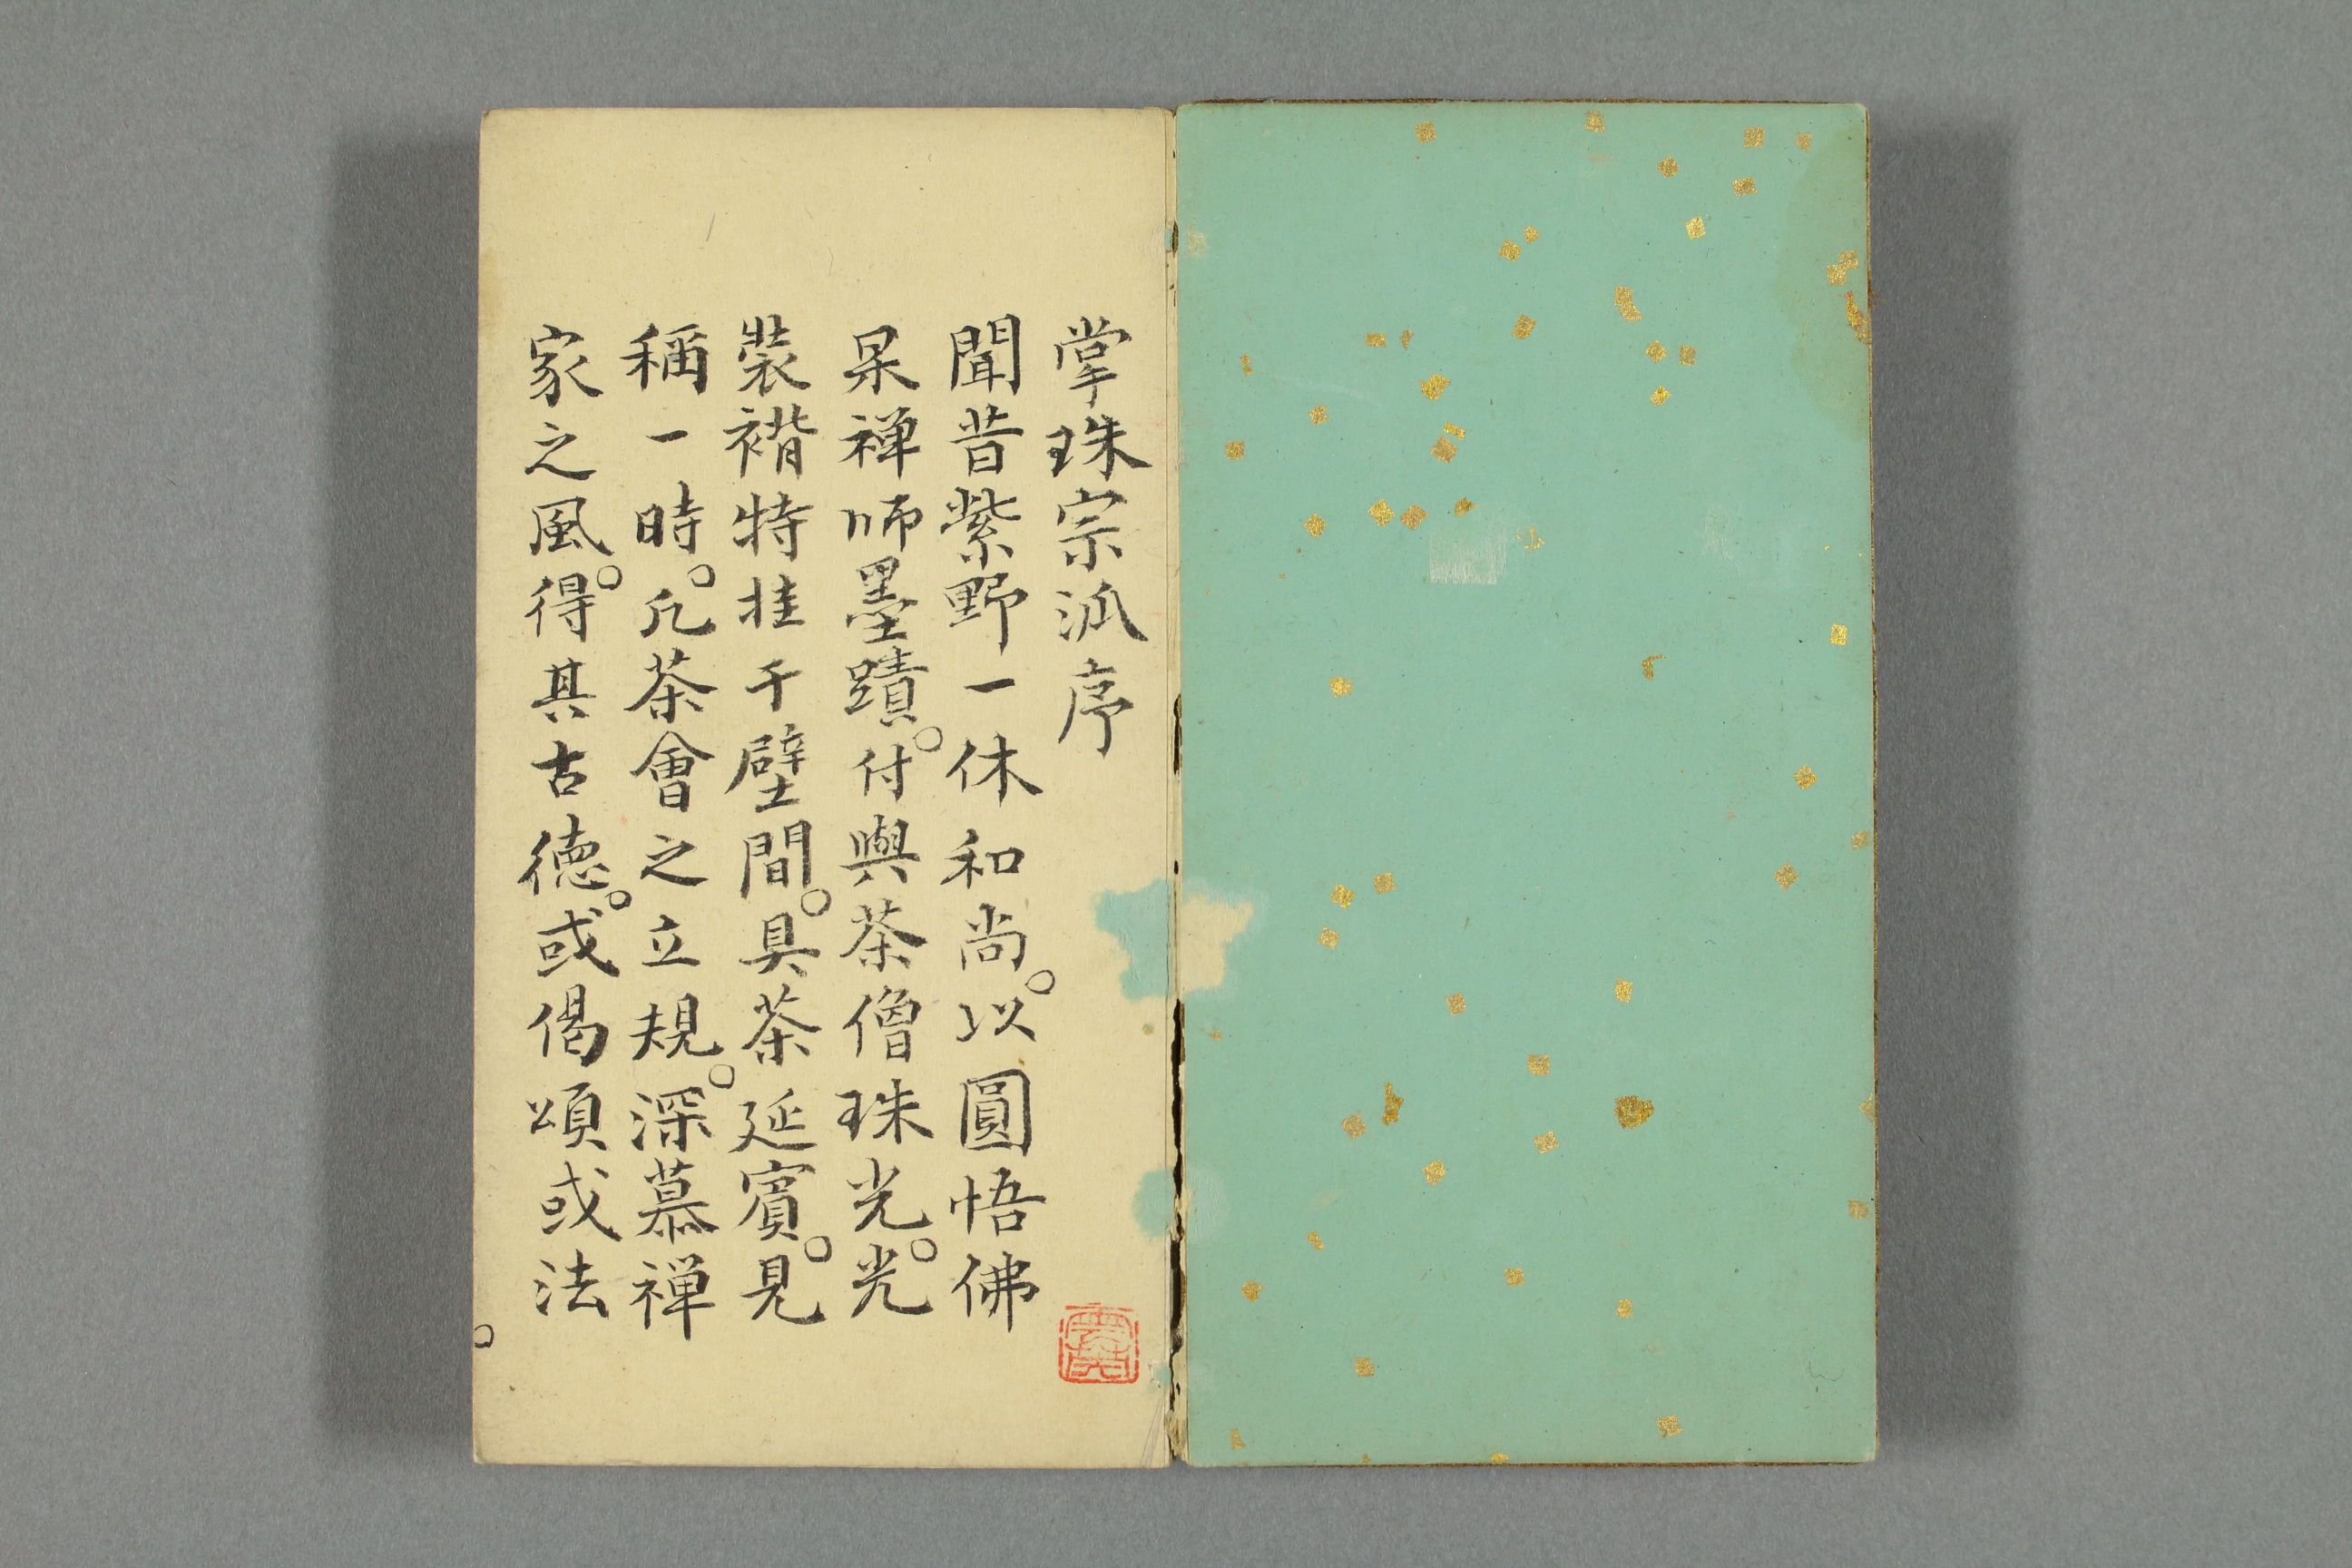 掌珠宗派序
聞昔紫野一休和尚。以圓悟佛
杲禅師墨蹟。付與茶僧珠光。光
裝褙特挂于壁間。具茶延賓。見
稱一時。凡茶會之立規。深慕禅
家之風。得其古徳。或偈頌或法。